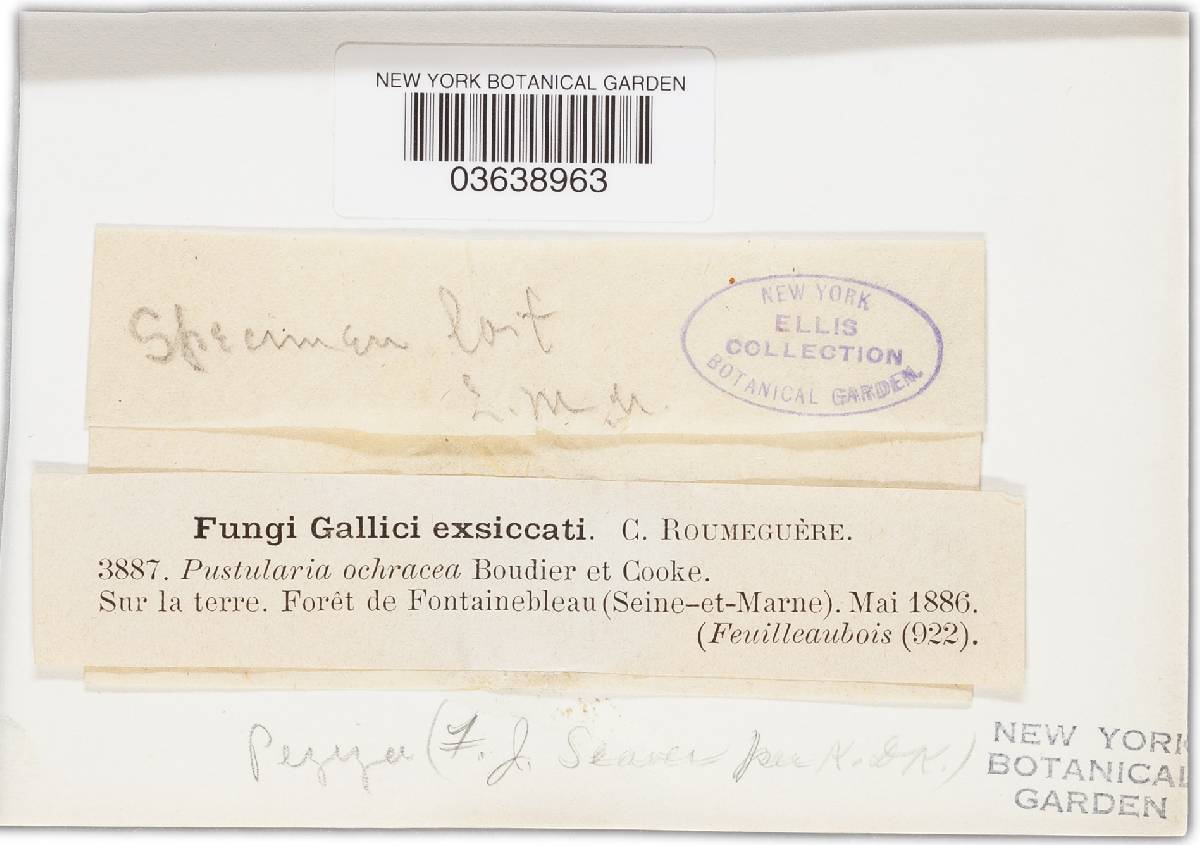 NEW YORK BOTANICAL GARDEN
03638963
Specimen lost
NEW YORK
ELLIS
COLLECTION
BOTANICAL GARDEN
Fungi Gallici exsiccati. C. ROUMEGUÈRE.
3887. Pustularia ochracea Boudier et Cooke.
Sur la terre. Forêt de Fontainebleau (Seine-et-Marne). Mai 1886.
(Feuilleaubois (922).
Peziza (F. J. Seaver per K.D.K.)
NEW YORK
BOTANICAL
GARDEN